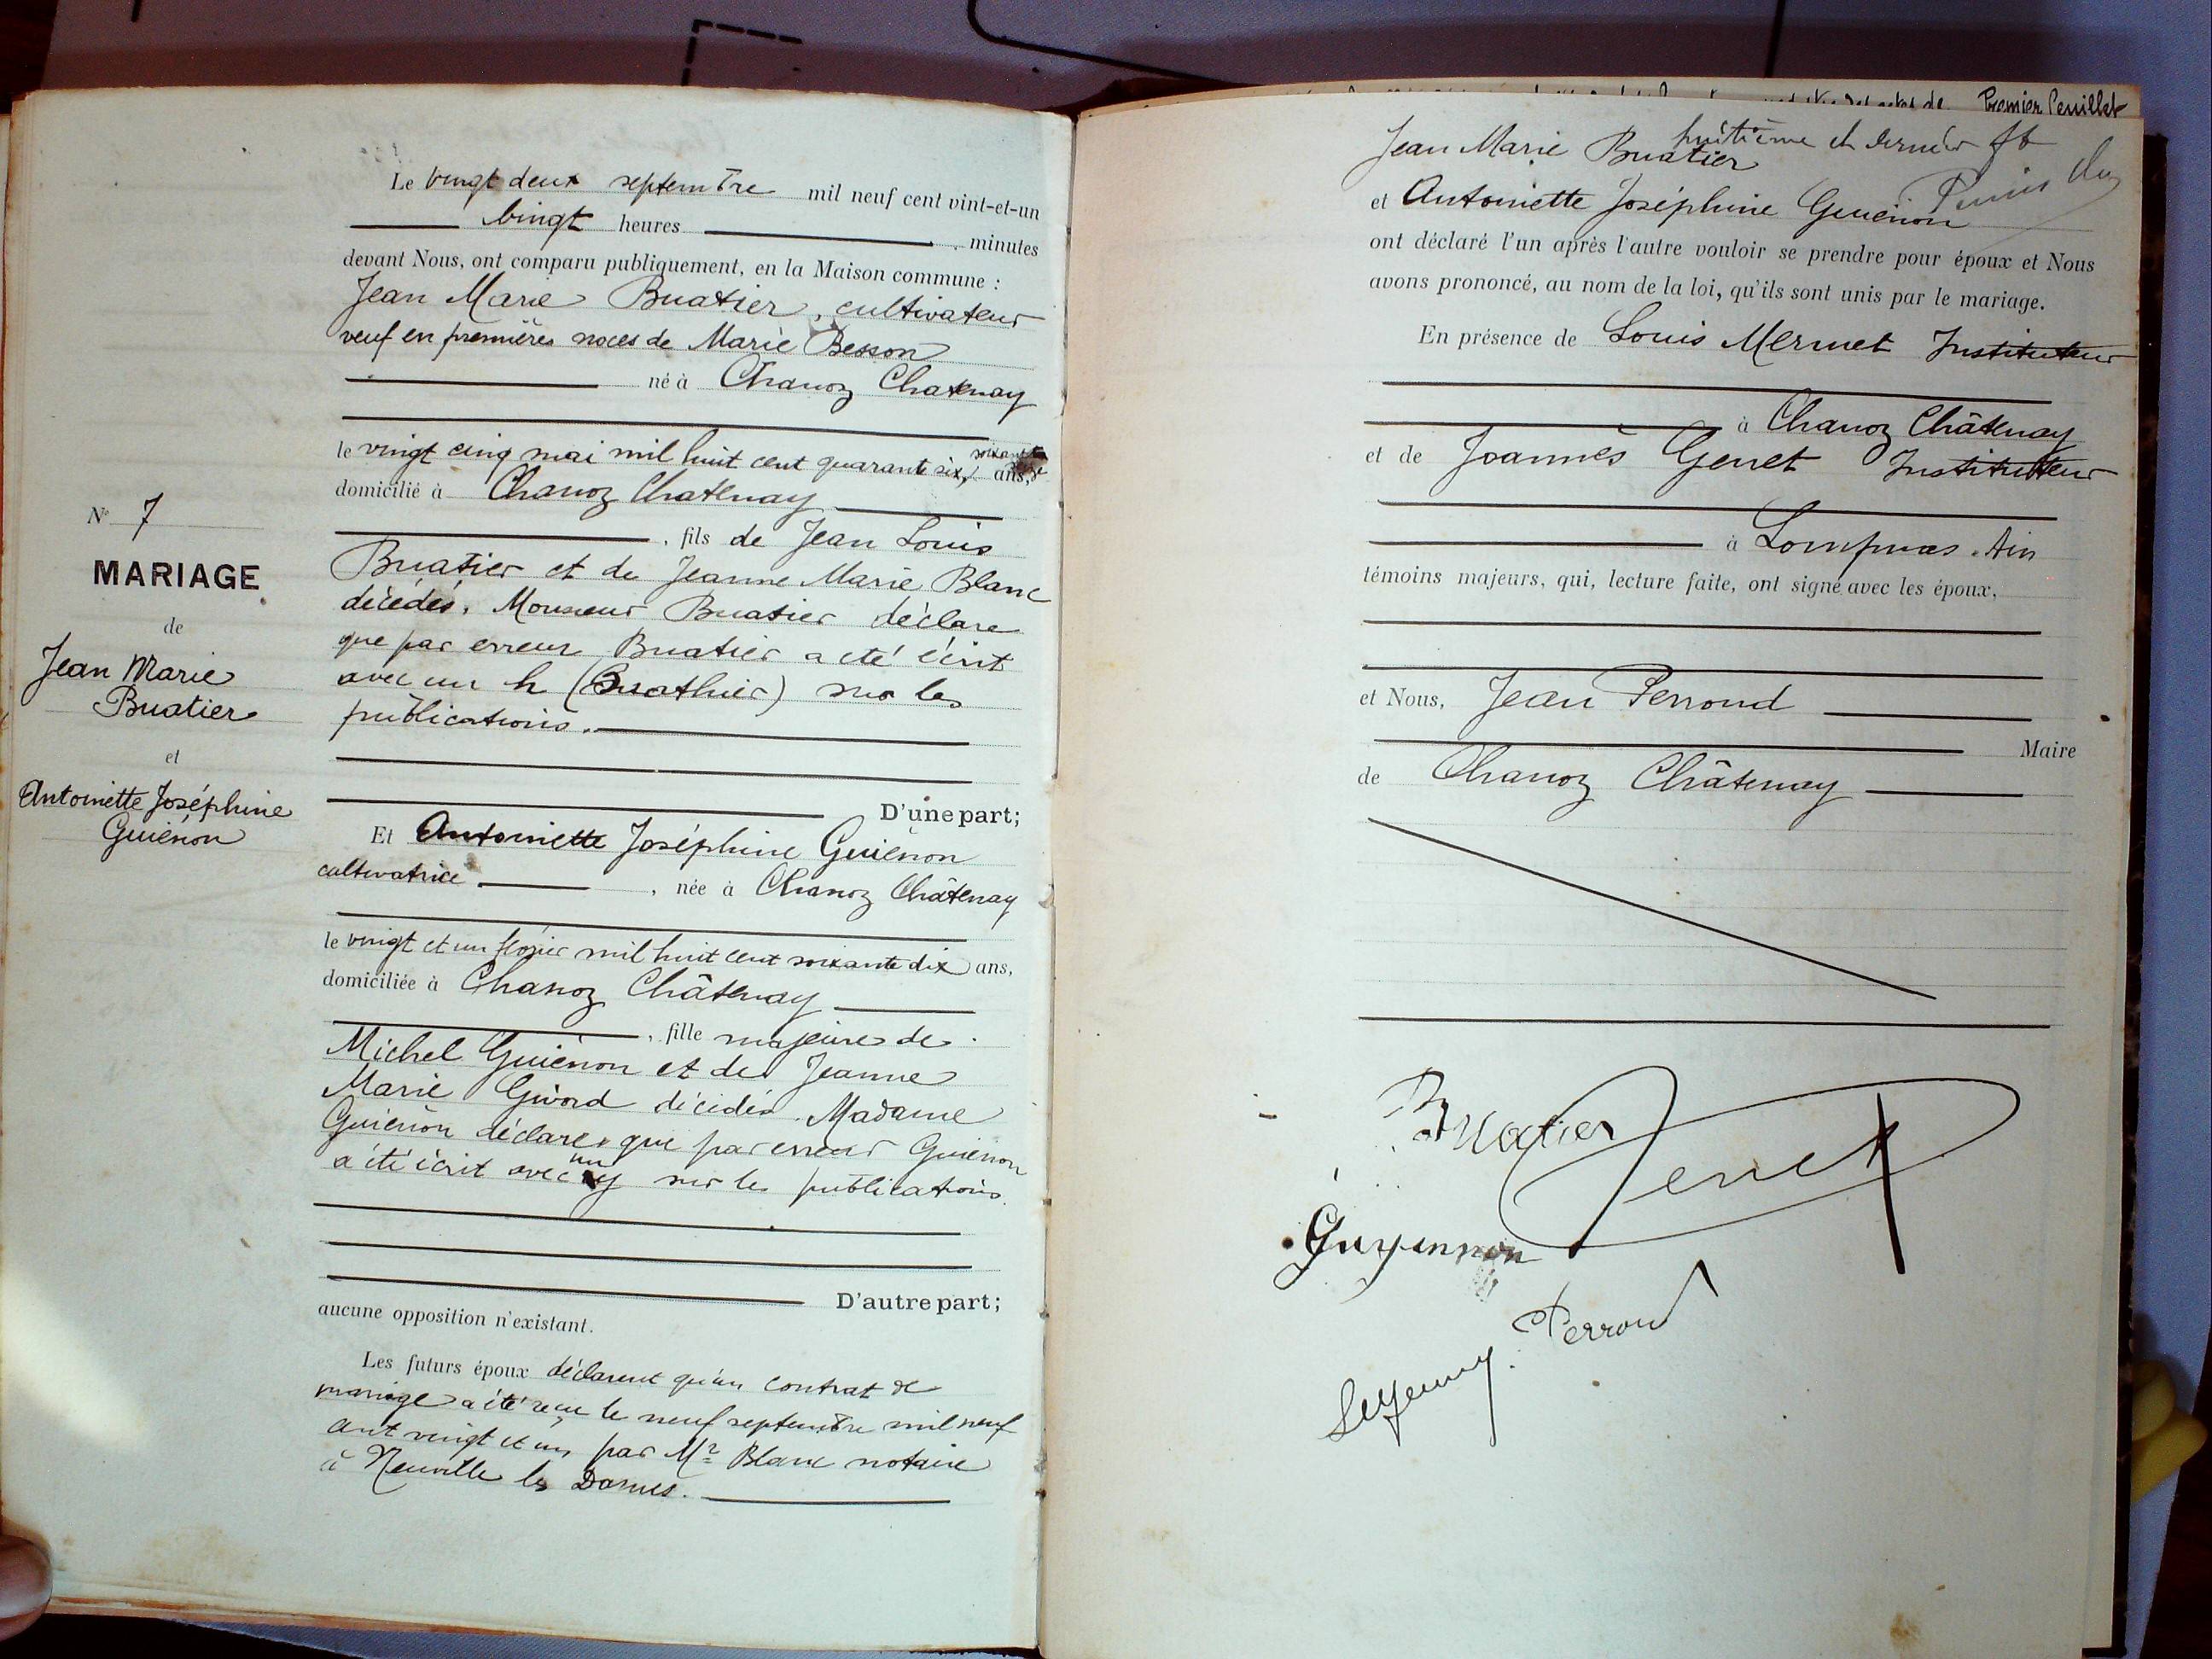 N° 7
MARIAGE
de
Jean Marie
Buatier
et
Antoinette Joséphine
Guiénon
Le vingt deux septembre mil neuf cent vint-et-un
vingt heures minutes
devant Nous, ont comparu publiquement, en la Maison commune :
Jean Marie Buatier, cultivateur
veuf en premières noces de Marie Besson
né à Chanoz Chatenay
le vingt cinq mai mil huit cent quarante six, ans,
domicilié à Chanoz Chatenay
, fils de Jean Louis
Buatier et de Jeanne Marie Blanc
décédés. Monsieur Buatier déclare
que par erreur Buatier a été écrit
avec un h (Buathier) sur les
publications.
D'une part;
Et Antoinette Joséphine Guiénon
cultivatrice , née à Chanoz Châtenay
le vingt et un février mil huit cent soixante dix ans,
domiciliée à Chanoz Châtenay
, fille majeure de
Michel Guiénon et de Jeanne
Marie Givord décédés. Madame
Guiénon déclare que par erreur Guiénon
a été écrit avec un y sur les publications.
D'autre part;
aucune opposition n'existant.
Les futurs époux déclarent qu'un contrat de
mariage a été reçu le neuf septembre mil neuf
cent vingt et un par Mr Blanc notaire
à Neuville les Dames.
Premier feuillet
huitième et dernier
Jean Marie Buatier
et Antoinette Joséphine Guiénon
ont déclaré l'un après l'autre vouloir se prendre pour époux et Nous
avons prononcé, au nom de la loi, qu'ils sont unis par le mariage.
En présence de Louis Mermet Instituteur
à Chanoz Châtenay
et de Joannès Genet Instituteur
à Lompnas. Ain
témoins majeurs, qui, lecture faite, ont signé avec les époux,
et Nous, Jean Perroud
Maire
de Chanoz Châtenay
Buatier
Genet
Guyennon
Perroud